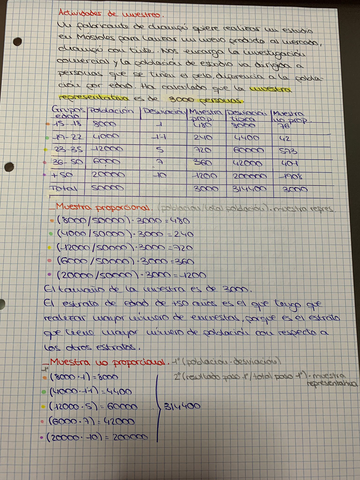 Actividades de muestreo.
Un fabricante de champú quiere realizar un estudio
en Móstoles para lanzar un nuevo producto al mercado,
champú con tinte. Nos encarga la investigación
comercial y la población de estudio va dirigida a
personas que se tiñen el pelo, diferencia a la pobla-
ción por edad. Ha calculado que la muestra
representativa es de 3000 personas.
Grupos edad Población Desviación Muestra prop. Desviación Muestra no prop.
15-18 8000 1 480 8000 76
19-22 4000 1'1 240 4400 42
23-35 12000 5 720 60000 573
36-50 6000 7 360 42000 401
+50 20000 10 1200 200000 1908
Total 50000 3000 314400 3000
Muestra proporcional (población/total población)·muestra repres.
(8000/50000)·3000=480
(4000/50000)·3000=240
(12000/50000)·3000=720
(6000/50000)·3000=360
(20000/50000)·3000=1200
El tamaño de la muestra es de 3000.
El estrato de edad de +50 años es el que tengo que
realizar mayor número de encuestas, porque es el estrato
que tiene mayor número de población con respecto a
los otros estratos.
Muestra no proporcional. 1º(población·desviación)
2º(resultado paso 1º/total paso 1º)·muestra
representativa
(8000·1)=8000
(4000·1'1)=4400
(12000·5)=60000
314400
(6000·7)=42000
(20000·10)=200000